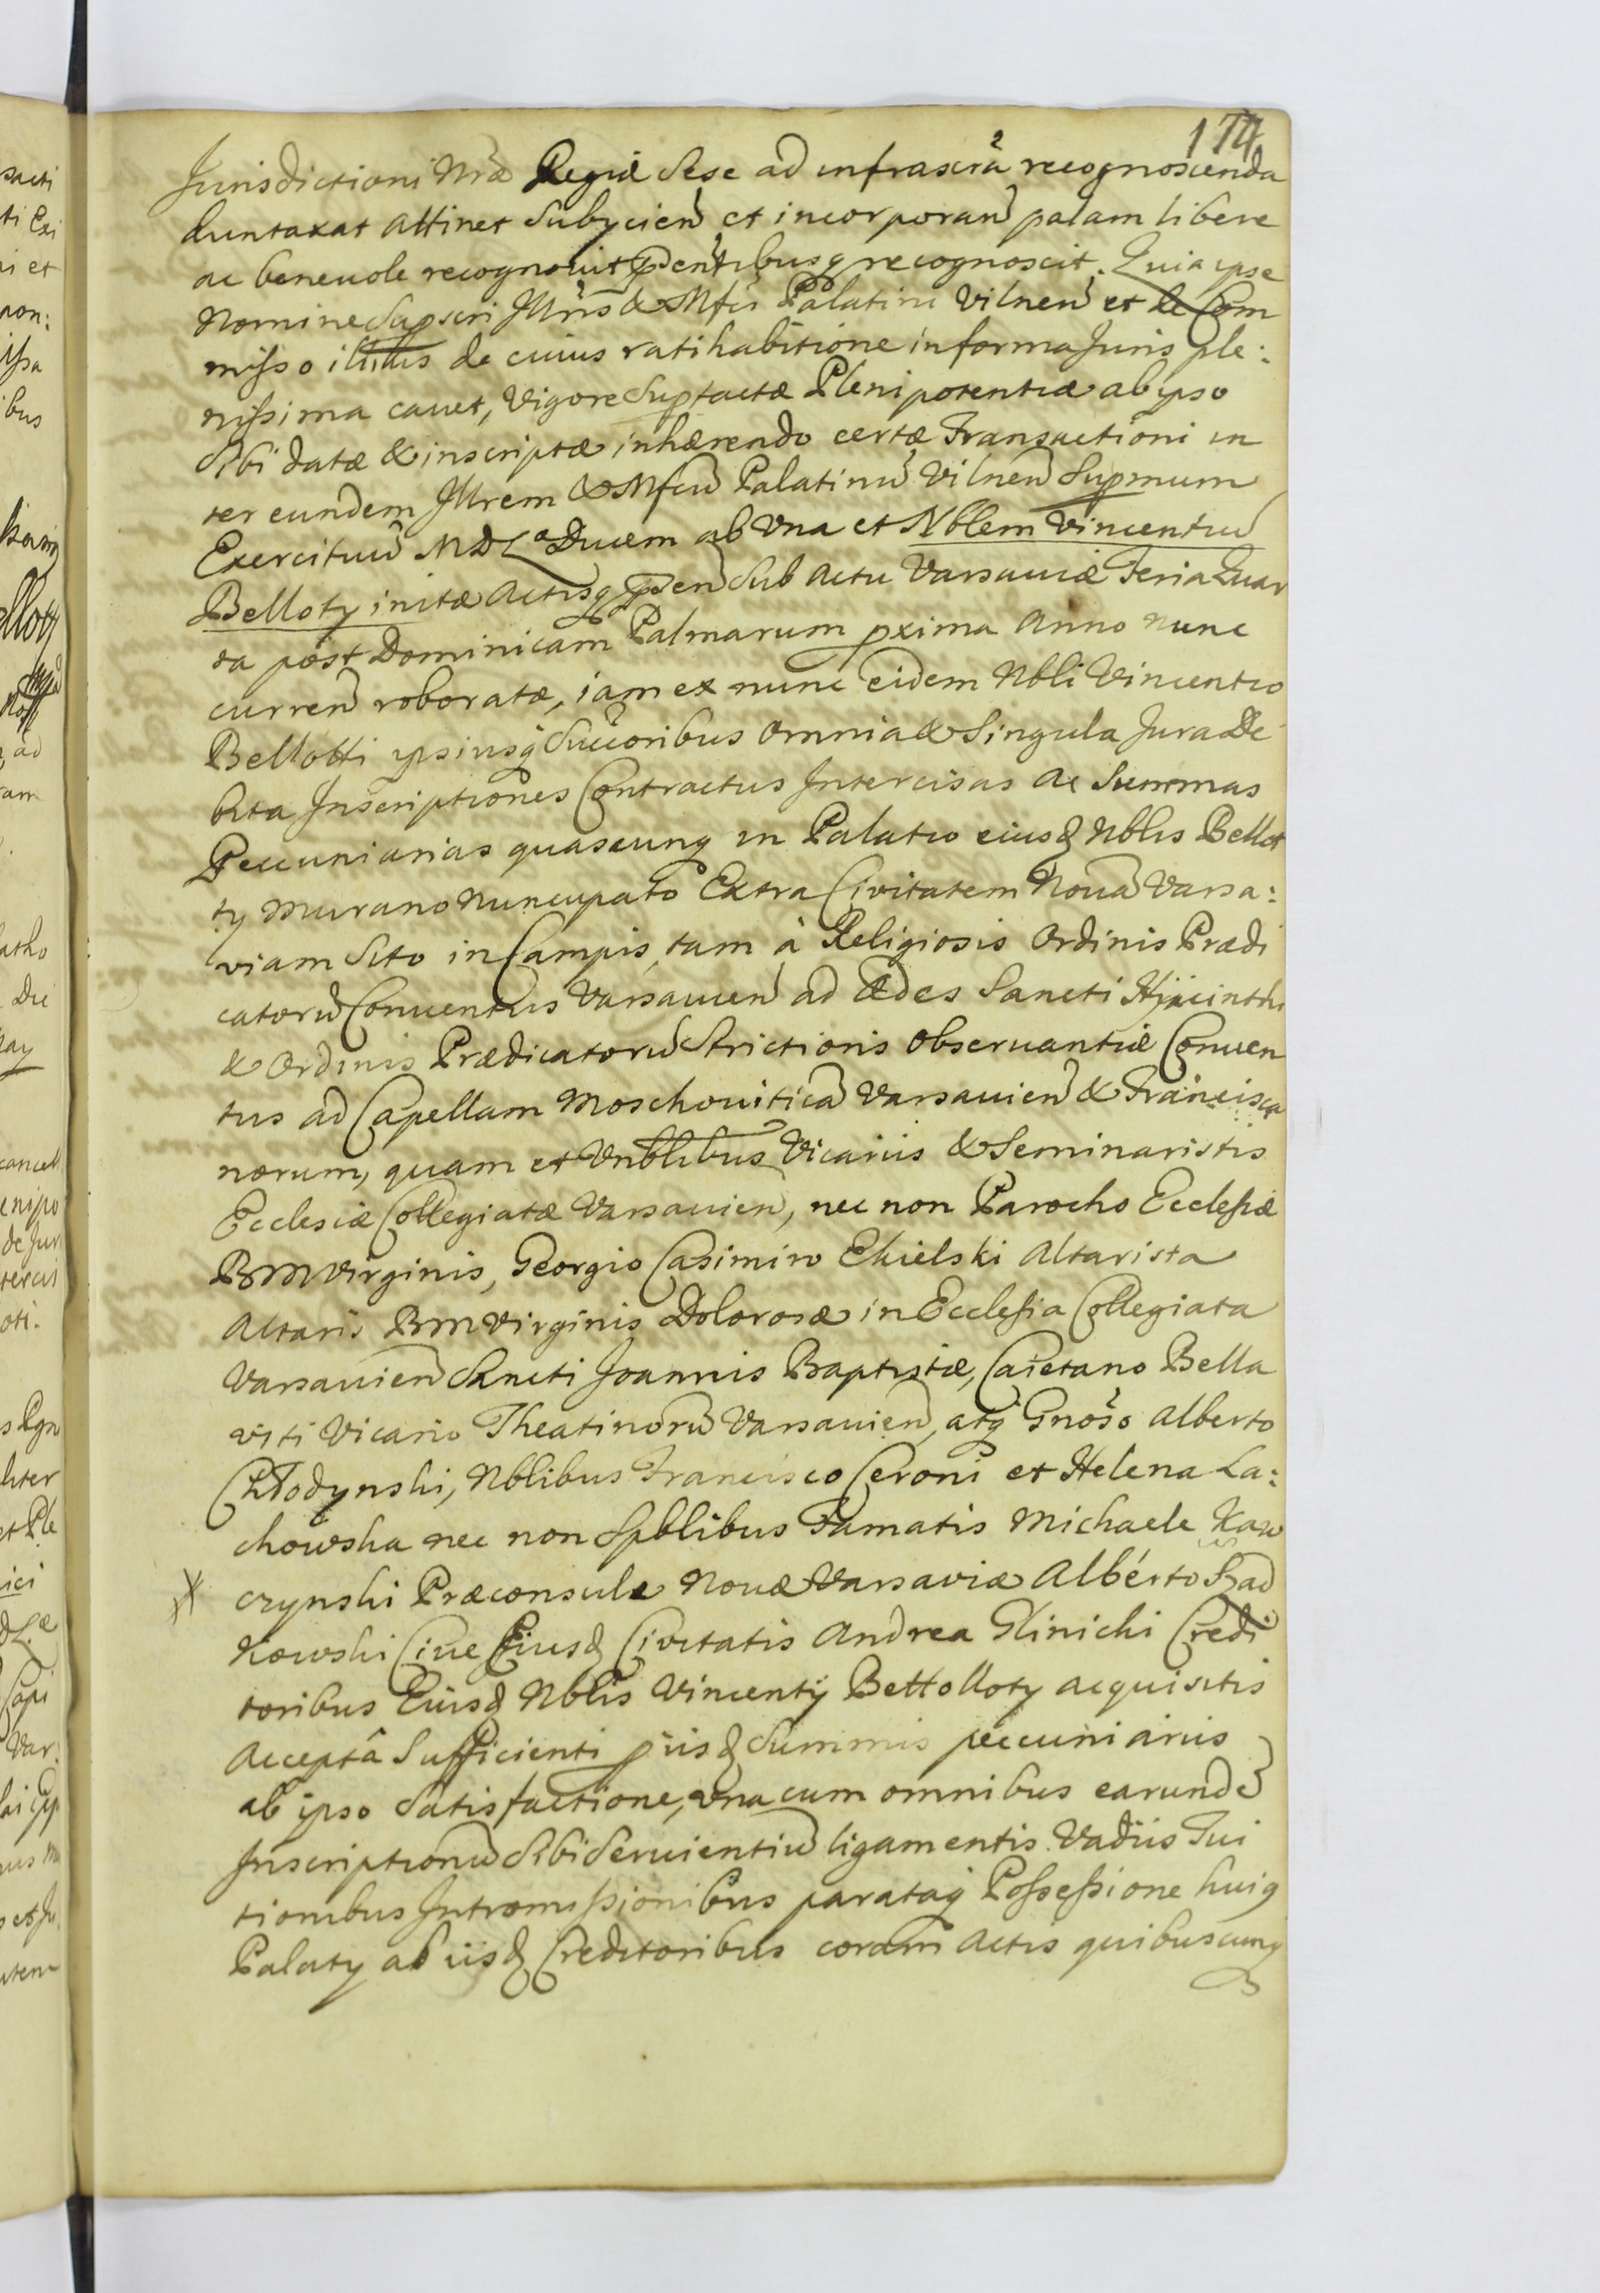 174
Jurisdictioni Nræ Regiæ Sese ad infrascra recognoscenda
duntaxat attinet Subycien et incorporan palam libere
ac beneuole recognouit pentibusq recognoscit. Quia ipse
Nomine Supscri Jllris & Mfci Palatini Vilnen et de Com
misso illius de cuius ratihabitione in forma Juris ple:
nissima cauet, Vigore Suptactæ Plenipotentiæ ab ipso
Sibi datæ & inscriptæ inhærendo certæ Transactioni in
ter eundem Jllrem & Mfcu Palatinu Vilnen Supmum
Exercituu MDL Ducem ab Vna et Nblem Vincentiu
Belloty initæ Actisq pen Sub Actu Varsauiæ Feria Quar
ta post Dominicam Palmarum pxima Anno nunc
curren roboratæ, iam ex nunc eidem Nbli Vincentio
Bellotti ipsiusq Succoribus Omnia & Singula Jura De
bita Inscriptiones Contractus Intercisas ac Summas
Pecuniarias quascunq in Palatio eiusd Nblis Bellot
ty Murano nuncupato Extra Civitatem Nouã Varsa:
viam Sito in Campis, tam à Religiosis Ordinis Prædi
catoru Conuentus Varsauien ad Ædes Sancti Hyacinthi
& Ordinis Prædicatoru Strictioris Obseruantiæ Conuen
tus ad Capellam Moschouiticã Varsauien & Francisca
norum, quam et Vnblibus Vicariis & Seminaristis
Ecclesiæ Collegiatæ Varsauien, nec non Parocho Ecclesiæ
BMVirginis, Georgio Casimiro Ekielski Altarista
Altaris BMVirginis Dolorosæ in Ecclesia Collegiata
Varsauien Sancti Joannis Baptistæ, Caietano Bella
viti Vicario Theatinoru Varsauien, atq Gnoso Alberto
Chłodynski, Nblibus Francisco Ceroni et Helena La:
chowska nec non Spblibus Famatis Michaele Kaw
czynski Præconsule Nouæ Varsaviæ Alberto Szad
kowski Ciue Eiusd Civitatis Andrea Glinicki Credi
toribus Eiusd Nblis Vincenty Bettolloty acquisitis
Acceptâ Sufficienti p iisd Summis pecuniariis
ab ipso Satisfactione, vna cum omnibus earunde
Inscriptionu Sibi Seruientiu ligamentis Vadiis Tui
tionibus Intromissionibus parataq Possessione huiq
Palaty ab iisd Creditoribus coram Actis quibuscunq